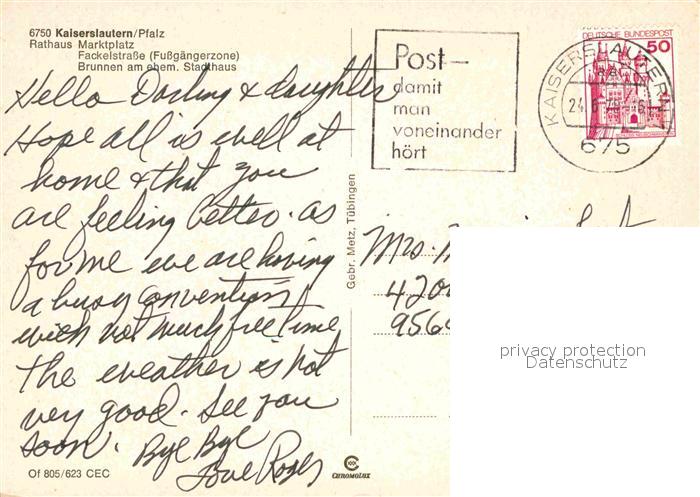 6750 Kaiserslautern/Pfalz
Rathaus Marktplatz
Fackelstraße (Fußgängerzone)
Brunnen am ehem. Stadthaus
Hello Darling & daughter
Hope all is well at
home & that you
are feeling better. as
for me we are having
a busy convention
with not much free time
the weather is not
very good. See you
soon. Bye Bye
Love Roger
Of 805/623 CEC
Post-
damit
man
voneinander
hört
DEUTSCHE BUNDESPOST
50
KAISERSLAUTERN
675
Gebr. Metz, Tübingen
Mrs.
420
956
privacy protection
Datenschutz
CHROMOLUX